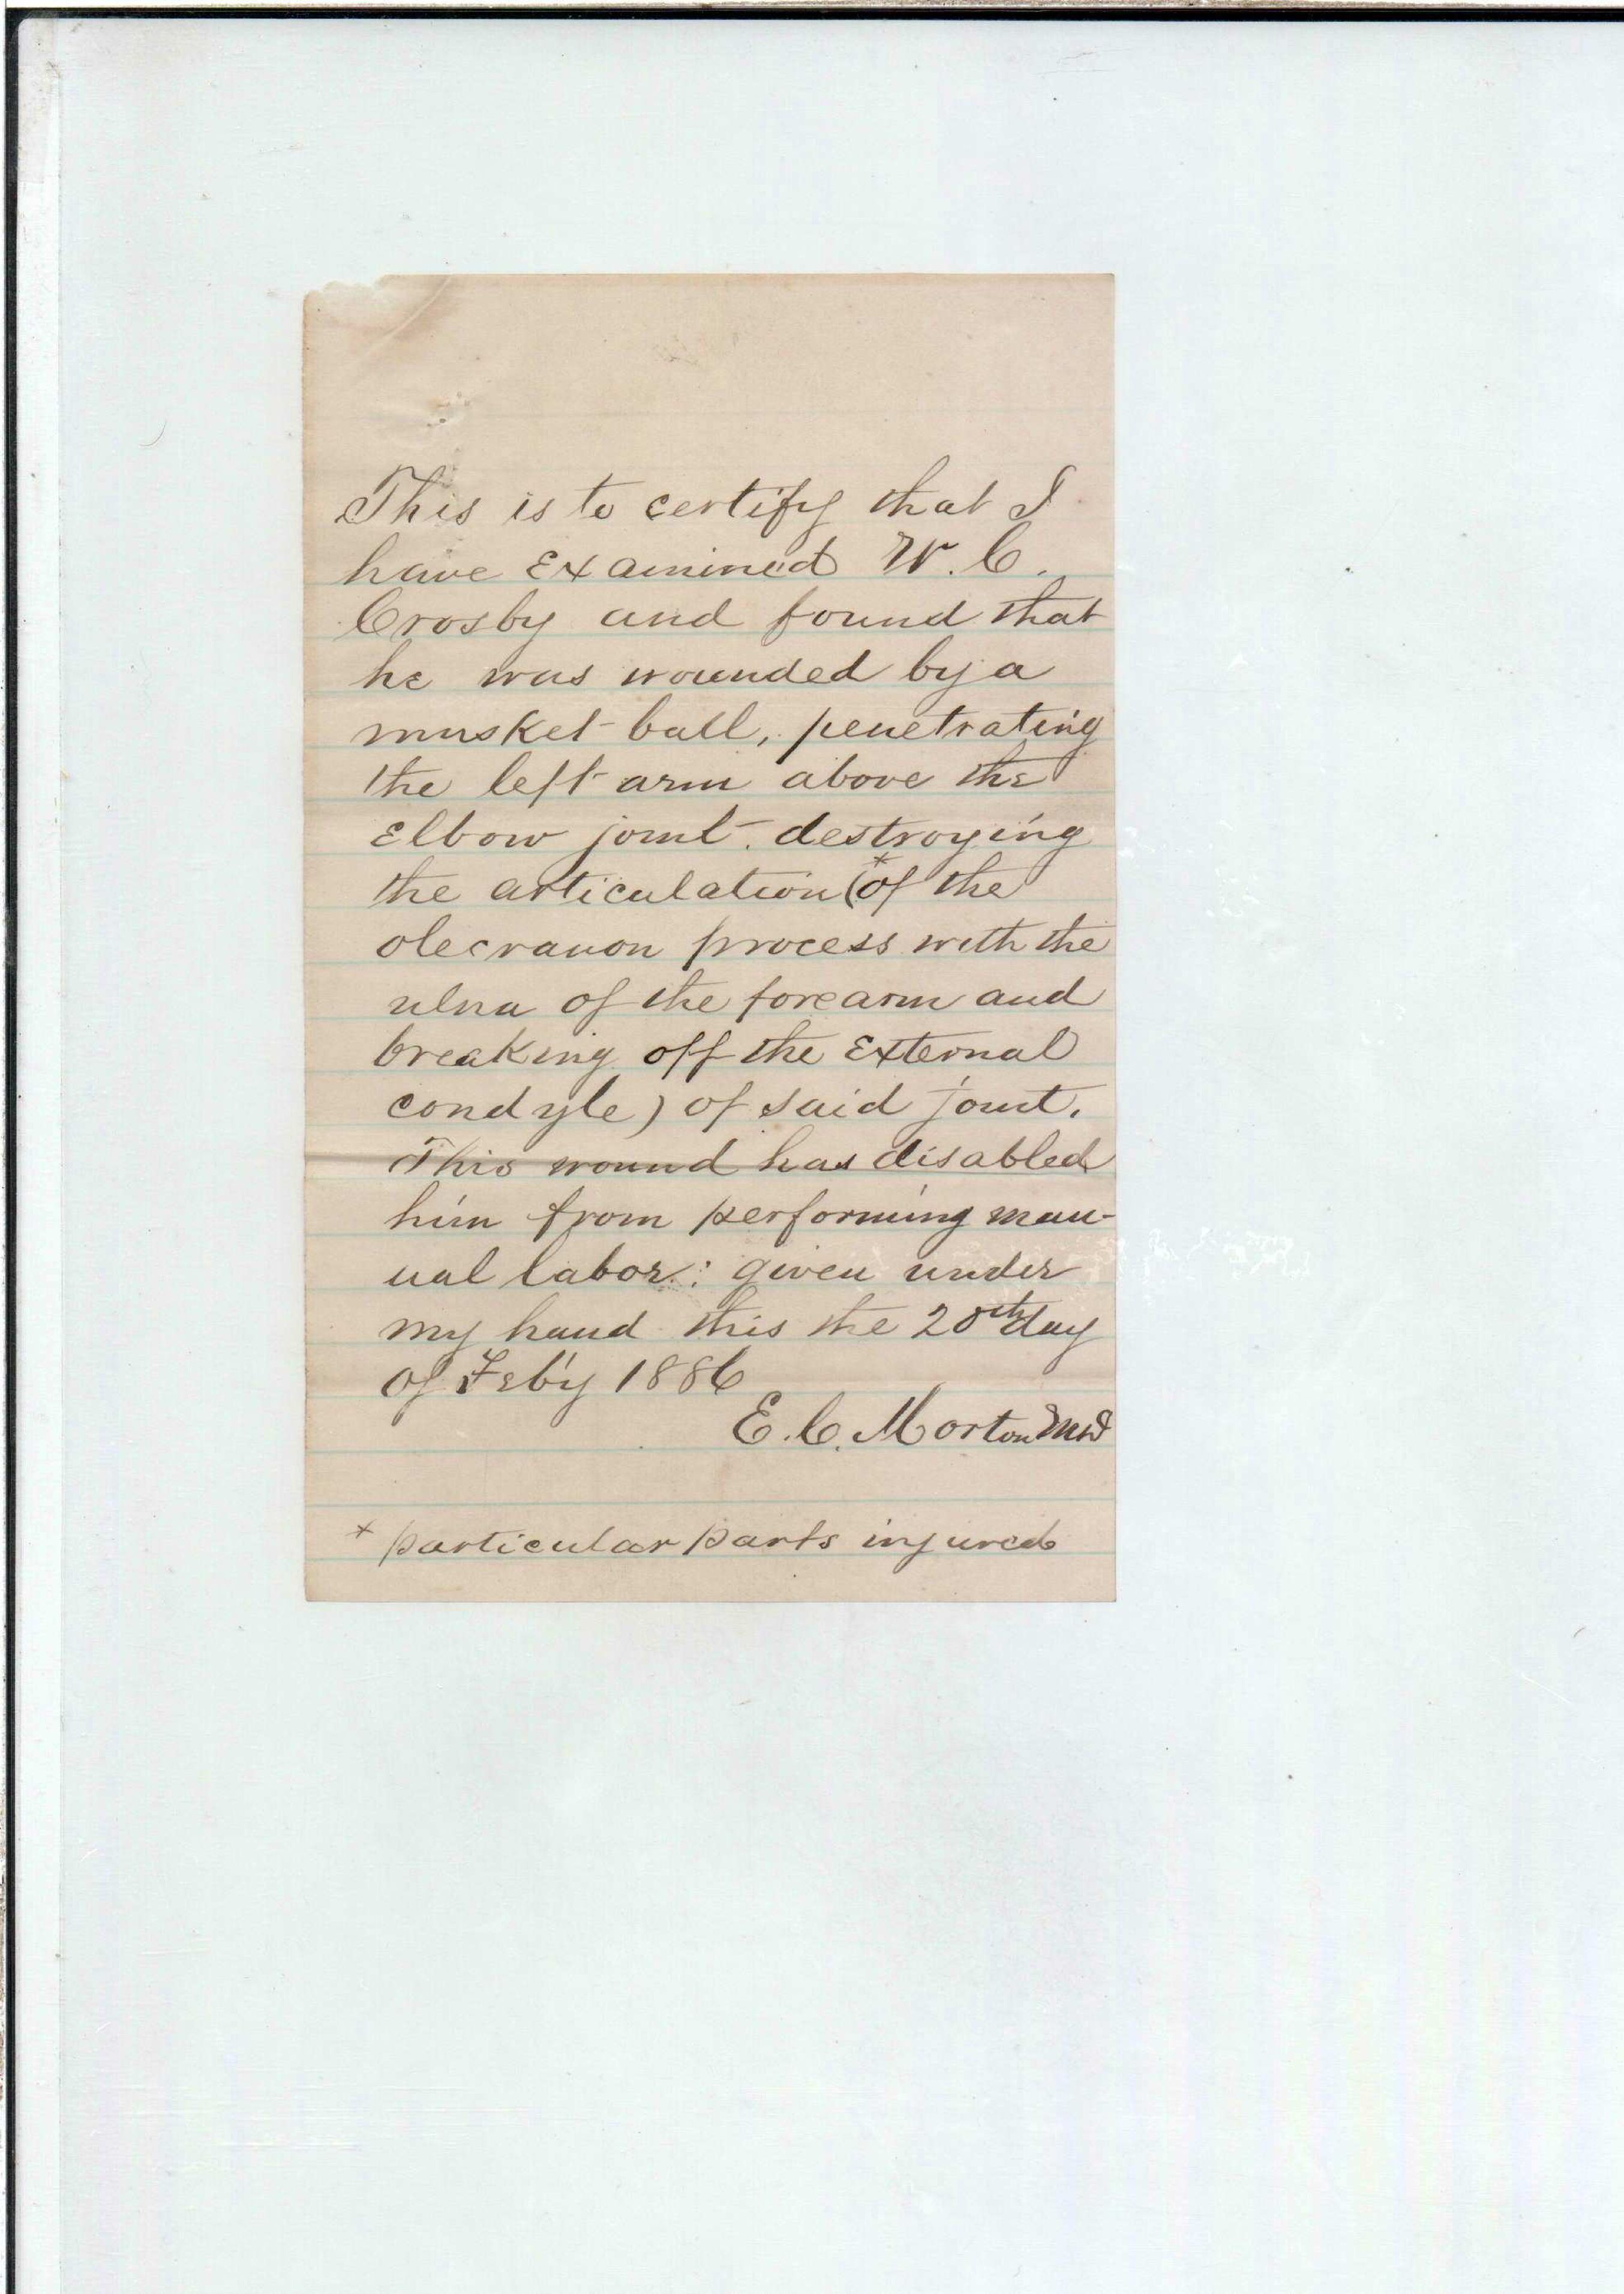 This is to certify that I
have Examined W. C.
Crosby and found that
he was wounded by a
musket ball, penetrating
the left arm above the
Elbow joint. destroying
the articulation (* of the
olecranon process with the
ulna of the forearm and
breaking off the External
condyle) of said joint.
This wound has disabled
him from performing man-
ual labor: given under
my hand this the 20th day
of Feb'y 1886
E. C. Morton MD
* particular parts injured